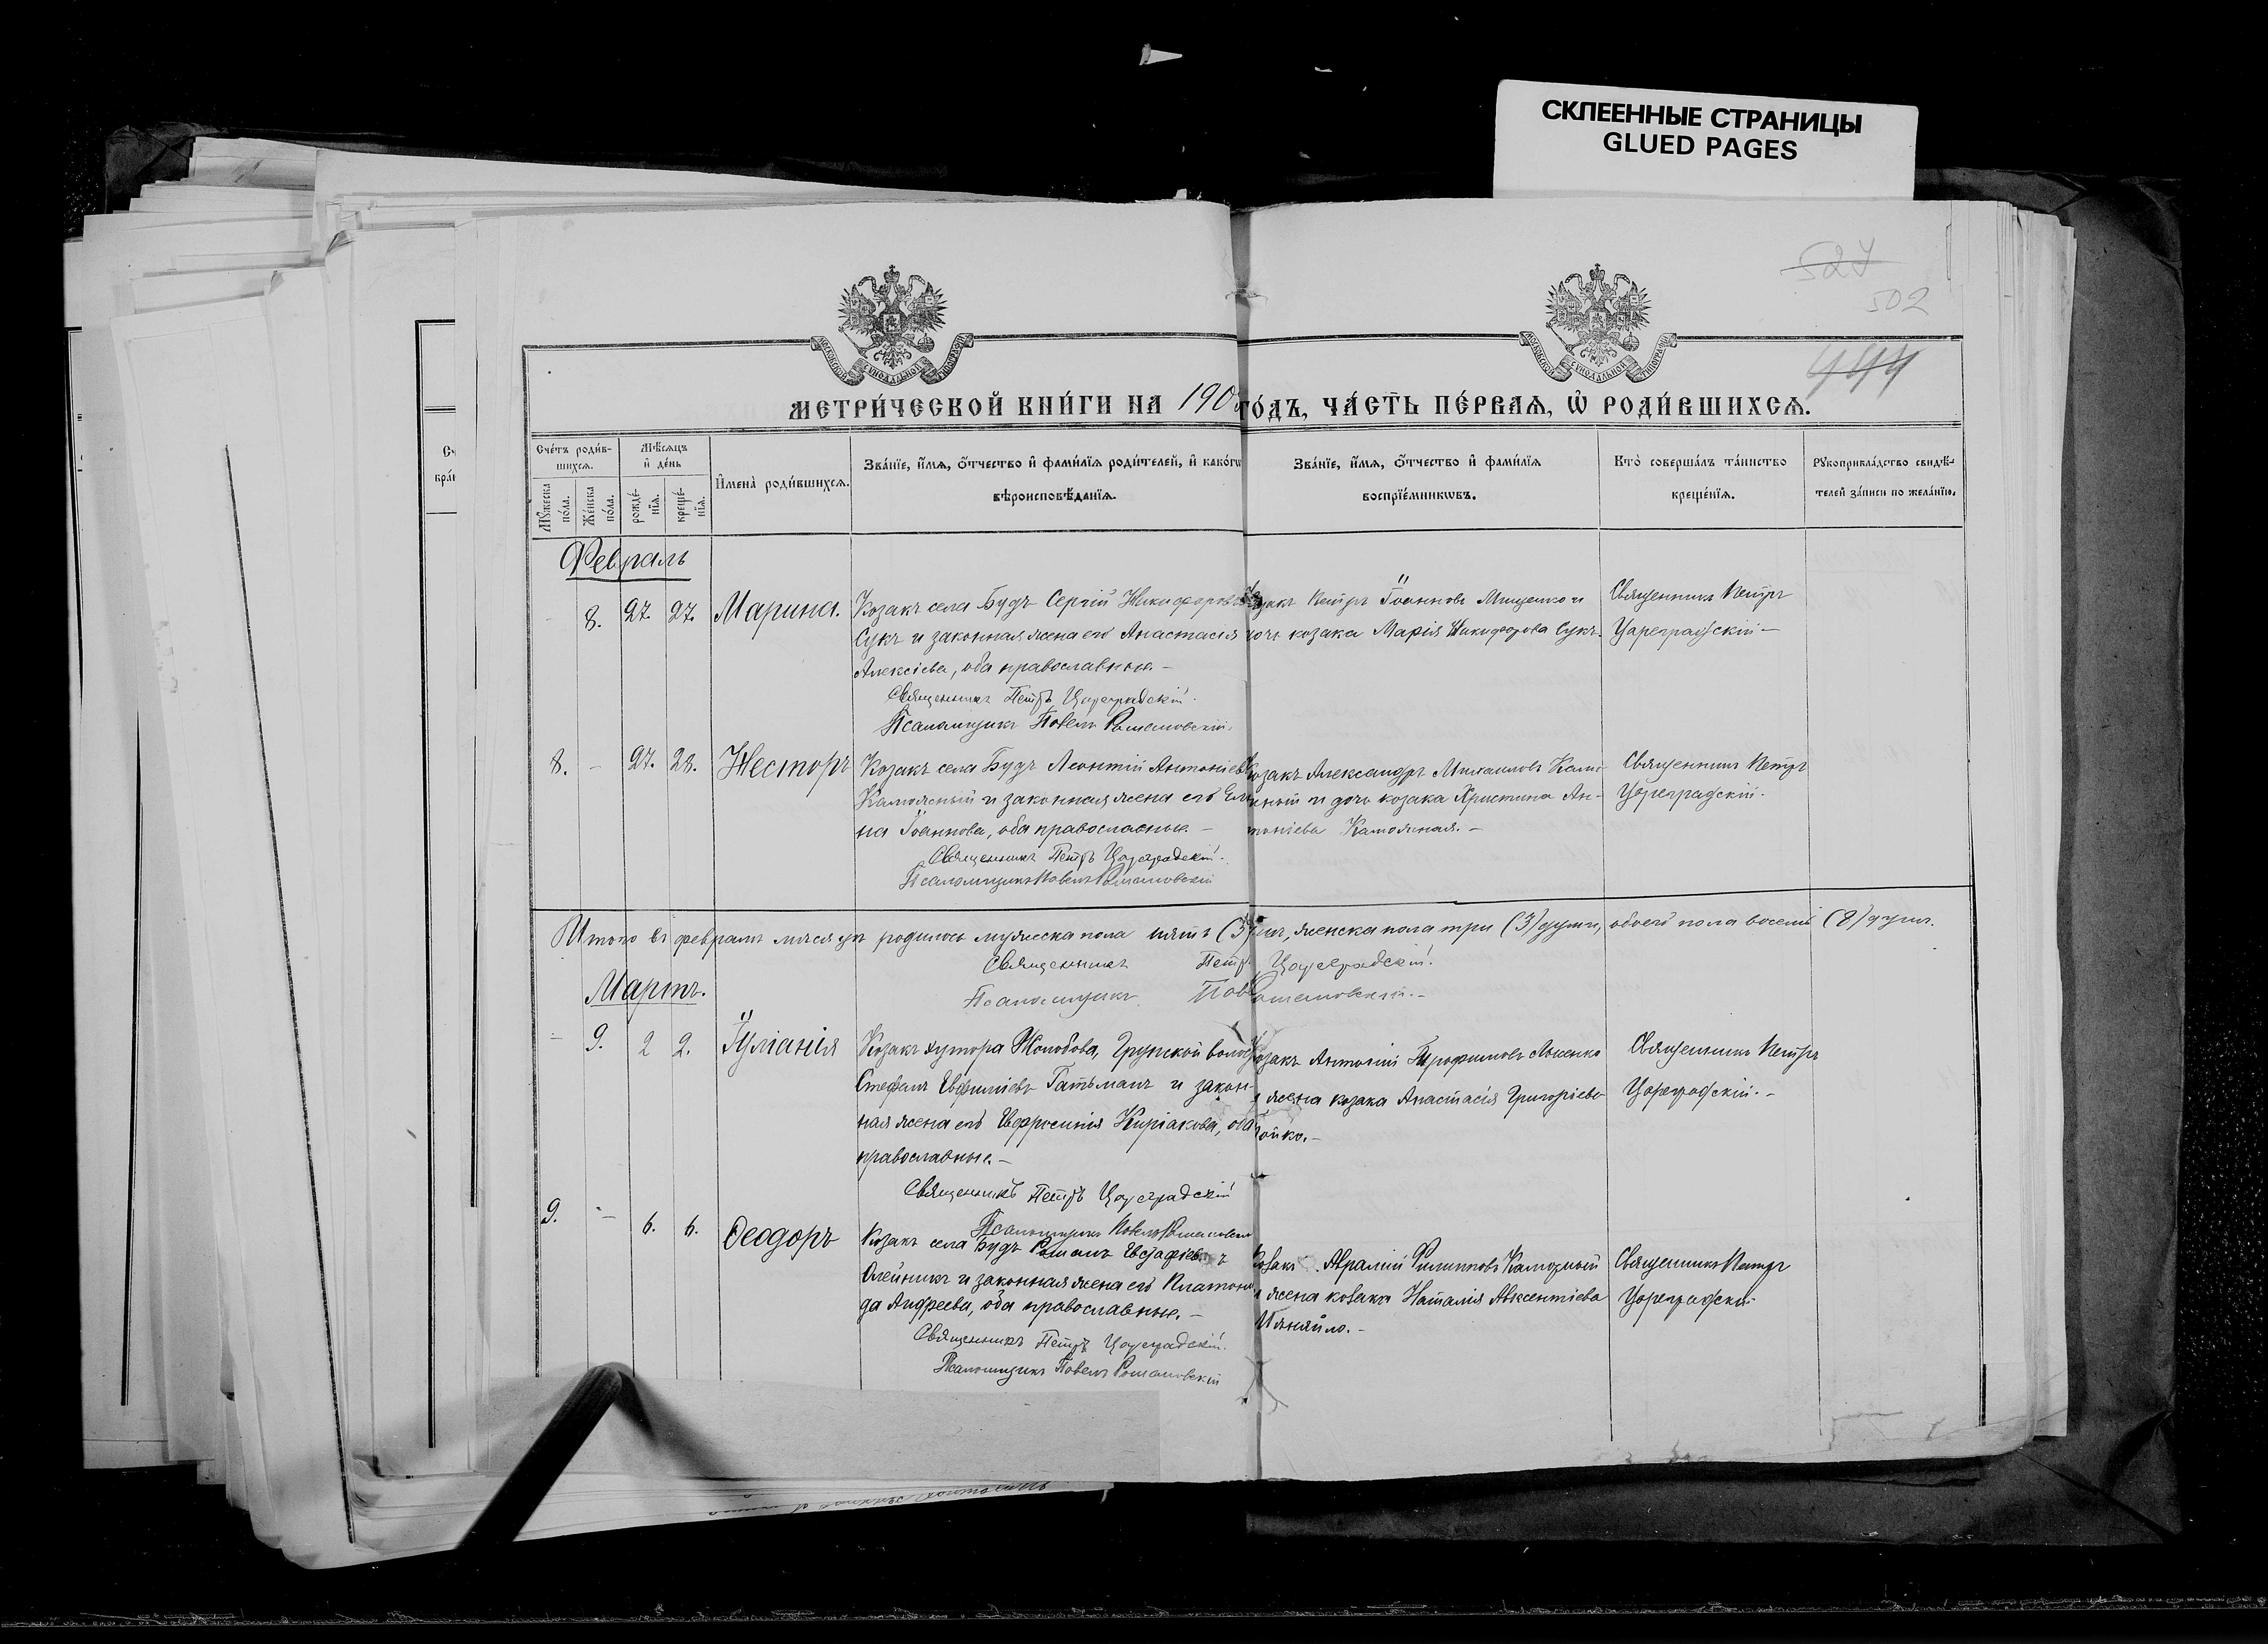 СКЛЕЕННЫЕ СТРАНИЦЫ
GLUED PAGES
527
502
МЕТРИ́ЧЕСКОЙ КНИ́ГИ НА 190 ГО́ДЪ, ЧА́СТЬ ПЕ́РВАЯ, Ѡ РОДИ́ВШИХСЯ.
Сче́тъ роди́в-
шихся.
Мѣ́сяцъ
и҆ де́нь
Мꙋ́жеска
по́ла.
Же́нска
по́ла.
рожде́-
нїѧ.
креще́-
нїѧ.
И҆мена̀ роди́вшихсѧ.
Зва́нїе, и҆́мѧ, ѻ҆́тчество и҆ фами́лїѧ роди́телей, и҆ како́гѡ
вѣроисповѣ́данїѧ.
Зва́нїе, и҆́мѧ, ѻ҆́тчество и҆ фами́лїѧ
воспрїе́мникѡвъ.
Кто̀ соверша́лъ та́инство
креще́нїѧ.
Рꙋкоприкла́дство свидѣ́-
телей за́писи по жела́нїю.
Февраль
8. 27. 27. Марина.
Козакъ села Будъ Сергій Никифоровъ
Сукъ и законная жена его Анастасія
Алексіева, оба православные. –
Священникъ Петръ Цареградскій.
Псаломщикъ Павелъ Романовскій.
Козакъ Петръ Іоанновъ Мищенко и
дочь козака Марія Никифорова Сукъ.
Священникъ Петръ
Цареградскій –
8. – 27. 28. Несторъ
Козакъ села Будъ Леонтій Антоніевъ
Каможный и законная жена его
на Іоаннова, оба православные. –
Священникъ Петръ Цареградскій.
Псаломщикъ Павелъ Романовскій
Козакъ Александръ Михаиловъ
и дочь козака Христина Ан-
тоніева –
Священникъ Петръ
Цареградскій.
Итого въ февралѣ мѣсяцѣ родилось мужеска пола пять (5) душъ, женска пола три (3) души, обоего пола восемь (8) душъ.
Священникъ Петръ Цареградскій.
Псаломщикъ Романовскій. –
Мартъ.
– 9. 2 2. Іуліанія
Козакъ хутора Жолобова, Грунской волос
Стефанъ Евфиміевъ Гатьманъ и закон-
ная жена его Евфросинія Киріакова, оба
православные. –
Священникъ Петръ Цареградскій
Псаломщикъ Павелъ Романовскій
Козакъ Антоній Трофимовъ
и жена козака Анастасія Григоріева
Бойко. –
Священникъ Петръ
Цареградскій. –
9. – 6. 6. Ѳеодоръ
Козакъ села Будъ Романъ Евстафіевъ
Олейникъ и законная жена его Платони
да Андреева, оба православные. –
Священникъ Петръ Цареградскій.
Псаломщикъ Павелъ Романовскій
Козакъ Филипповъ
и жена козака Наталія Авксентіева
Священникъ Петръ
Цареградскій